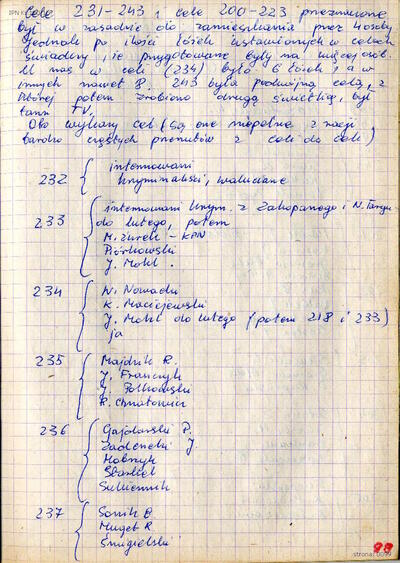 Cele 231-243 i cele 200-223 przeznaczone
były w zasadzie do zamieszkania przez 4 osoby
jednak po ilości łóżek ustawionych w celach
świadczy, że przygotowane były na więcej osób.
U nas w celi (234) było 6 łóżek, a w
innych nawet 8. 243 była podwójną celą, z
której potem zrobiono drugą świetlicę, był
tam TV.
Oto wykazy cel (są one niepełne z racji
bardzo częstych przerzutów z celi do celi)
232 { internowani
kryminaliści, walutowe
233 { internowani krym. z Zakopanego i N. Targu
do lutego, potem
M. Żurek - KPN
Piórkowski
J. Mohl.
234 { W. Nowacki
K. Maciejewski
J. Mohl do lutego (potem 218 i 233)
ja
235 { Majdzik R.
J. Franczyk
J. Polkowski
R. Chnatowicz
236 { Gajdarski P.
Zadencki J.
Sulikiennik
237 { Sonik B
Muget R
Śmigielski
98
strona: 0099